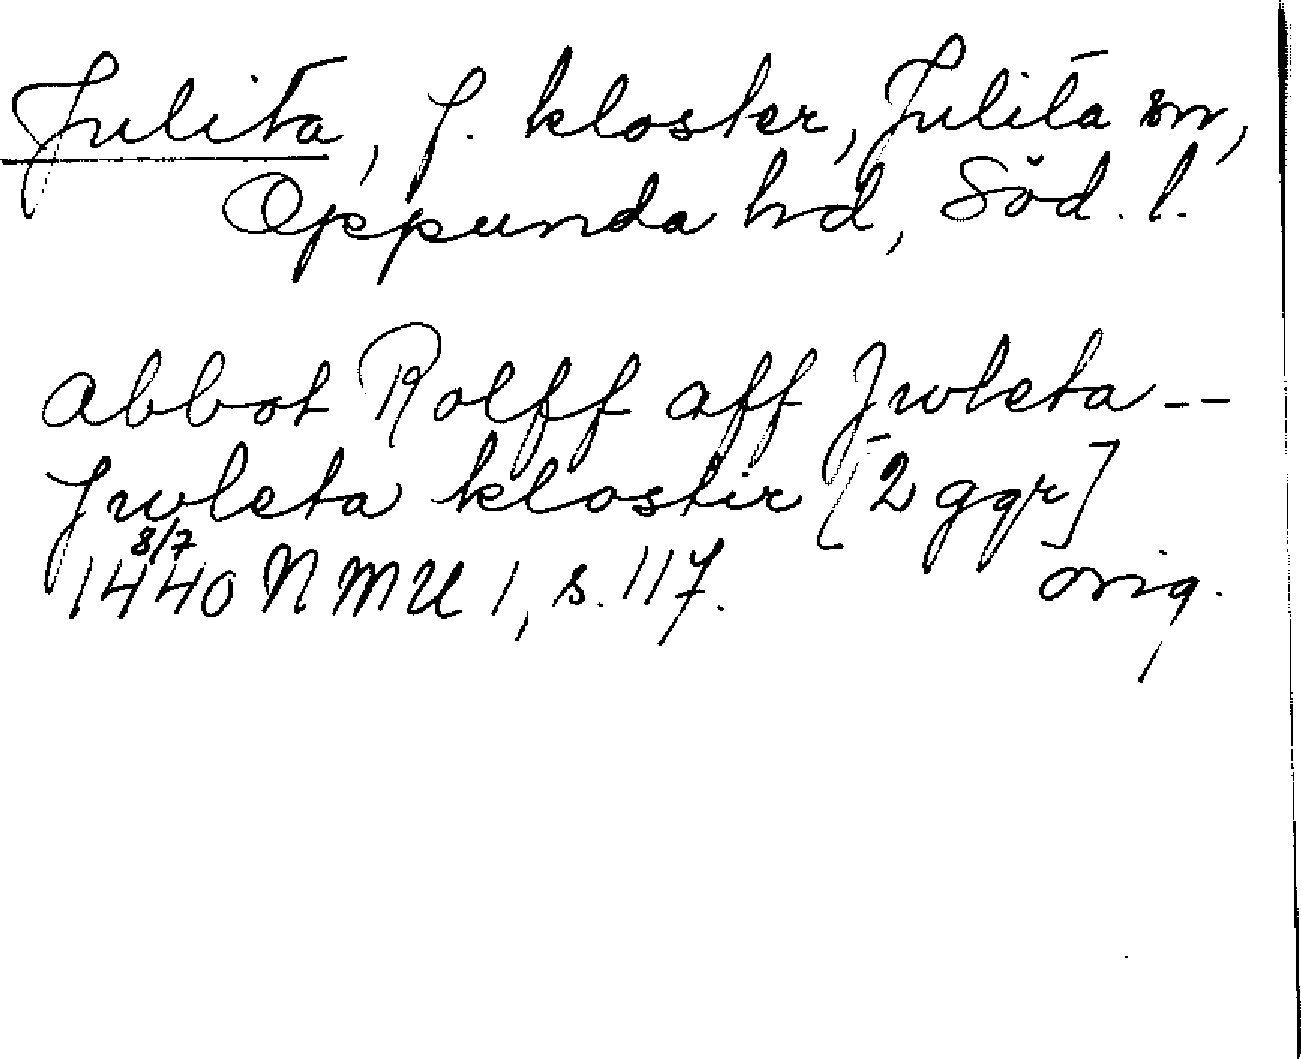 Julita, f. kloster, Julita sn,
Oppunda hd, Söd. l.
abbot Rolff aff Jwleta --
Jwleta klostir [2 ggr]
8/7
1440 NMU 1, s. 117. orig.